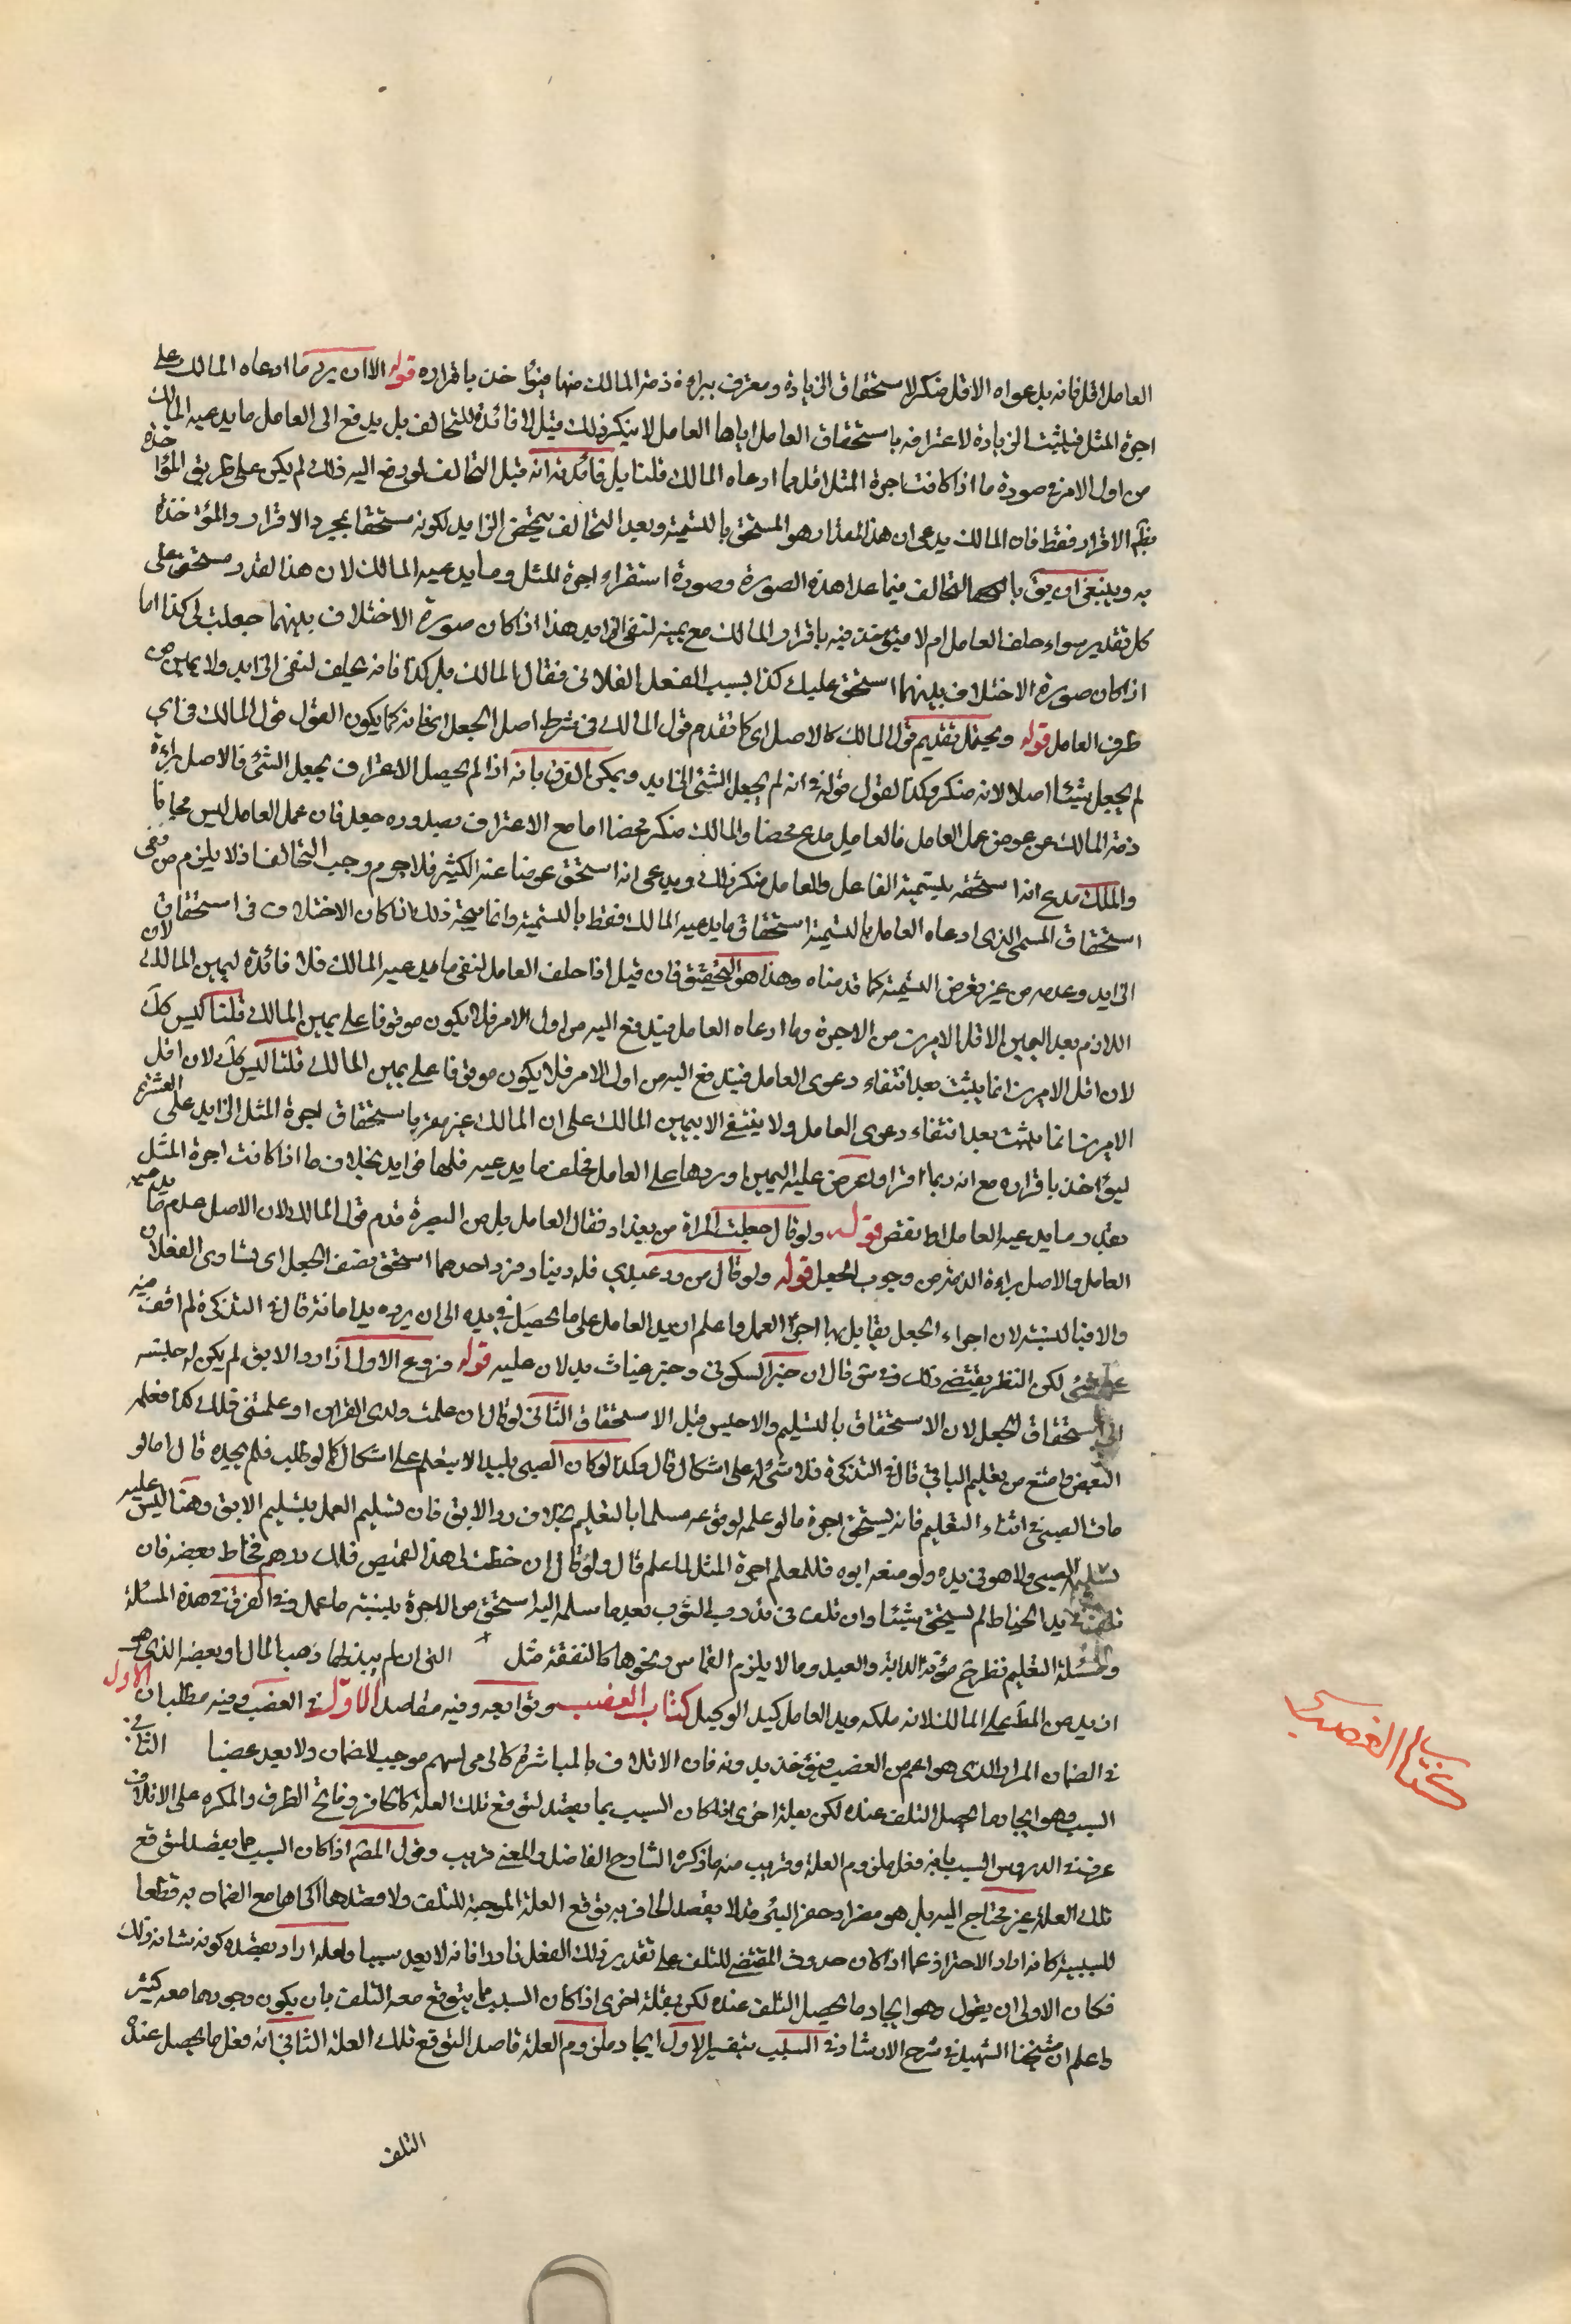 العامل اقل فانه بدعواه الاقل منكر لاستحقاق الزيادة ومعترف ببراءة ذمة المالك منها فيؤاخذ باقراره قوله الا ان يزيد ما ادعاه المالك على
اجرة المثل فيثبت الزيادة لاعترافه باستحقاق العامل اياها العامل لا ينكر ذلك قيل لا فائدة للتحالف بل يدفع الى العامل ما يدعيه المالك
من اول الامر في صورة ما اذا كانت اجرة المثل اقل مما ادعاه المالك قلنا بل فائدته انه قبل التحالف لو دفع اليه ذلك لم يكن على طريق المؤاخذة
الاقرار فقط فان المالك يدعى ان هذا المقدار هو المستحق بالتسمية وبعد التحالف الزايد لكونه مستحقا بمجرد الاقرار والمؤاخذة
به وينبغى ان يق با التحالف فيما عدا هذه الصورة وصورة استقرار اجرة المثل وما يدعيه المالك لان هذا القدر مستحق على
كل تقدير سواء حلف العامل ام لا فيؤخذ فيه باقرار المالك مع يمينه لنفى الزايد هذا اذا كان صورة الاختلاف بينهما جعلت لى كذا اما
اذا كان صورة الاختلاف بينهما استحق عليك كذا بسبب الفعل الفلانى فقال المالك بل كذا فانه يحلف لنفى الزايد ولا يمين من
طرف العامل قوله ويحتمل تقديم قول المالك كالاصل اى كما تقدم قول المالك فى شرط اصل الجعل اى فانه كما يكون القول قول المالك فى اى
لم يجعل شيئا اصلا لانه منكر وكذا القول قوله فى انه لم يجعل الشئ الزايد ويمكن الفرق بانه اذا لم يحصل الاعتراف بجعل الشئ فالاصل براءة
ذمة المالك عن عوض عمل العامل فالعامل مدع محضا والمالك منكر محضا اما مع الاعتراف بصدوره جعل فان عمل العامل ليس مجانا
والمالك مدع انه استحقه بتسمية الفاعل والعامل منكر ذلك ويدعى انه استحق عوضا عنه الكثير فلا جرم وجب التحالف اذ لا يلزم من نفى
استحقاق المسمى الذى ادعاه العامل بالتسمية استحقاق ما يدعيه المالك فقط بالتسمية وانما يتجه ذلك اذا كان الاختلاف فى استحقاق
الزايد وعدمه من غير تعرض للتسمية كما قدمناه وهذا هو التحقيق فان قيل اذا حلف العامل لنفى ما يدعيه المالك فلا فائدة ليمين المالك لان
اللازم بعد اليمين الاقل الامرين من الاجرة وما ادعاه العامل فيدفع اليه من اول الامر فلا يكون موقوفا على يمين المالك قلنا ليس كل
لان اقل الامرين انما يثبت بعد انتفاء دعوى العامل فيدفع اليه من اول الامر فلا يكون موقوفا على يمين المالك قلنا ليس كل لان اقل
الامرين انما يثبت بعد انتفاء دعوى العامل ولا ينتفى الا بيمين المالك على ان المالك غير مقر باستحقاق اجرة المثل الزايد على
ليؤاخذ باقراره مع انه ربما اقر اذا عرض عليه اليمين او ردها على العامل فحلف ما يدعيه فلها فوايد بخلاف ما اذا كانت اجرة المثل
بقدر ما يدعيه العامل او انقص قوله ولو قال جعلت المراة من بغداد فقال العامل بل من البصرة قدم قول المالك لان الاصل عدم ما يدعيه
العامل والاصل براءة الذمة من وجوب الجعل قوله ولو قال من رد عبدى فله دينار فرد احدهما استحق نصف الجعل اى تساوى الفعلان
والا فبالنسبة لان اجزاء الجعل يقابل بها اجزاء العمل واعلم ان يد العامل على ما يحصل فى يده الى ان يرده يد امانة قال فى التذكرة لم اقف فيه
على شئ لكن النظر يقتضى ذلك وفى ش قال ان خبر السكونى وخبر غياث يدلان عليه قوله فروع الاول اذا رد الابق لم يكن له حبسه
الى استحقاق الجعل لان الاستحقاق بالتسليم والا حبس قبل الاستحقاق الثانى لو قال ان علمت ولدى القران او علمتنى فلك كذا فعلمه
البعض وامتنع من تعليم الباقى قال فى التذكرة فلا شئ له على اشكال قال وكذا لو كان الصبى بليدا لا يتعلم على اشكال كما لو طلب فلم يجده قال اما لو
مات الصبى فى اثناء التعليم فانه يستحق اجرة ما لو علمه لوقوعه مسلما بالتعليم بخلاف رد الابق فان تسليم العمل بتسليم الابق وهنا ليس عليه
تسليم الصبى ولا هو فى يده ولو منعه ابوه فللمعلم اجرة المثل لما علم قال ولو قال ان خطت لى هذا القميص فلك درهم فخاط بعضه فان
تلف فى يد الخياط لم يستحق شيئا وان تلف فى يد رب الثوب بعد ما سلمه اليه استحق من الاجرة بنسبة ما عمل وفى الفرق فى هذه المسئلة
ومسئلة التعليم نظر مؤنة الدابة والعبد وما لا يلزم القماس ونحوها كالنفقة مثل التى ان لم يبذلها ذهب المال او بعضه الذى هو
ان يد من المط على المالك لانه ملكه ويد العامل كيد الوكيل كتاب الغصب وتوابعه وفيه مقاصد الاول فى الغصب وفيه مطلبان الاول
فى الضمان المراد الذى هو اعم من الغصب فيؤخذ بدونه فان الاتلاف بالمباشرة كالرمى لسهم موجب للضمان ولا يعد غصبا الثانى
السبب وهو ايجاد ما يحصل التلف عنده لكن بعلة اخرى اذا كان السبب بما يقصد لتوقع تلك العلة كالحافر وفاتح الظرف والمكره على الاتلاف
عرف فى الدروس السبب بانه فعل ملزوم العلة وقريب منه ما ذكره الشارح الفاضل والمعنى قريب وقول المصنم اذا كان السبب مما يقصد لتوقع
تلك العلة غير محتاج اليه بل هو مضر اذ حفر البئر مثلا لا يقصد الحافر به توقع العلة الموجبة للتلف ولا قصدها اكثرها مع الضمان به قطعا
للسببية كانه اراد الاحتراز عما اذا كان حدوث المقتضى للتلف على تقدير ذلك الفعل نادرا فانه لا يعد سببا ولعله اراد بقصده كونه شانه ذلك
فكان الاولى ان يقول وهو ايجاد ما يحصل التلف عنده لكن بعلة اخرى اذا كان السبب مما يتوقع معه التلف بان يكون وجودها معه كثير
واعلم ان شيخنا الشهيد فى شرح الارشاد فى السبب بتفسير الاول ايجاد ملزوم العلة قاصد التوقع تلك العلة الثانى انه فعل ما يحصل عنده
التلف
كتاب الغصب